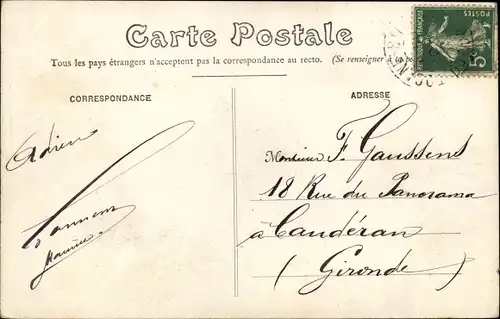 Carte Postale
Tous les pays étrangers n'acceptent pas la correspondance au recto. (Se renseigner à la
CORRESPONDANCE
ADRESSE
POSTES
5
Adrien
Maurice
Monsieur F. Gaussens
18 Rue du Panorama
à Caudéran
(Gironde)